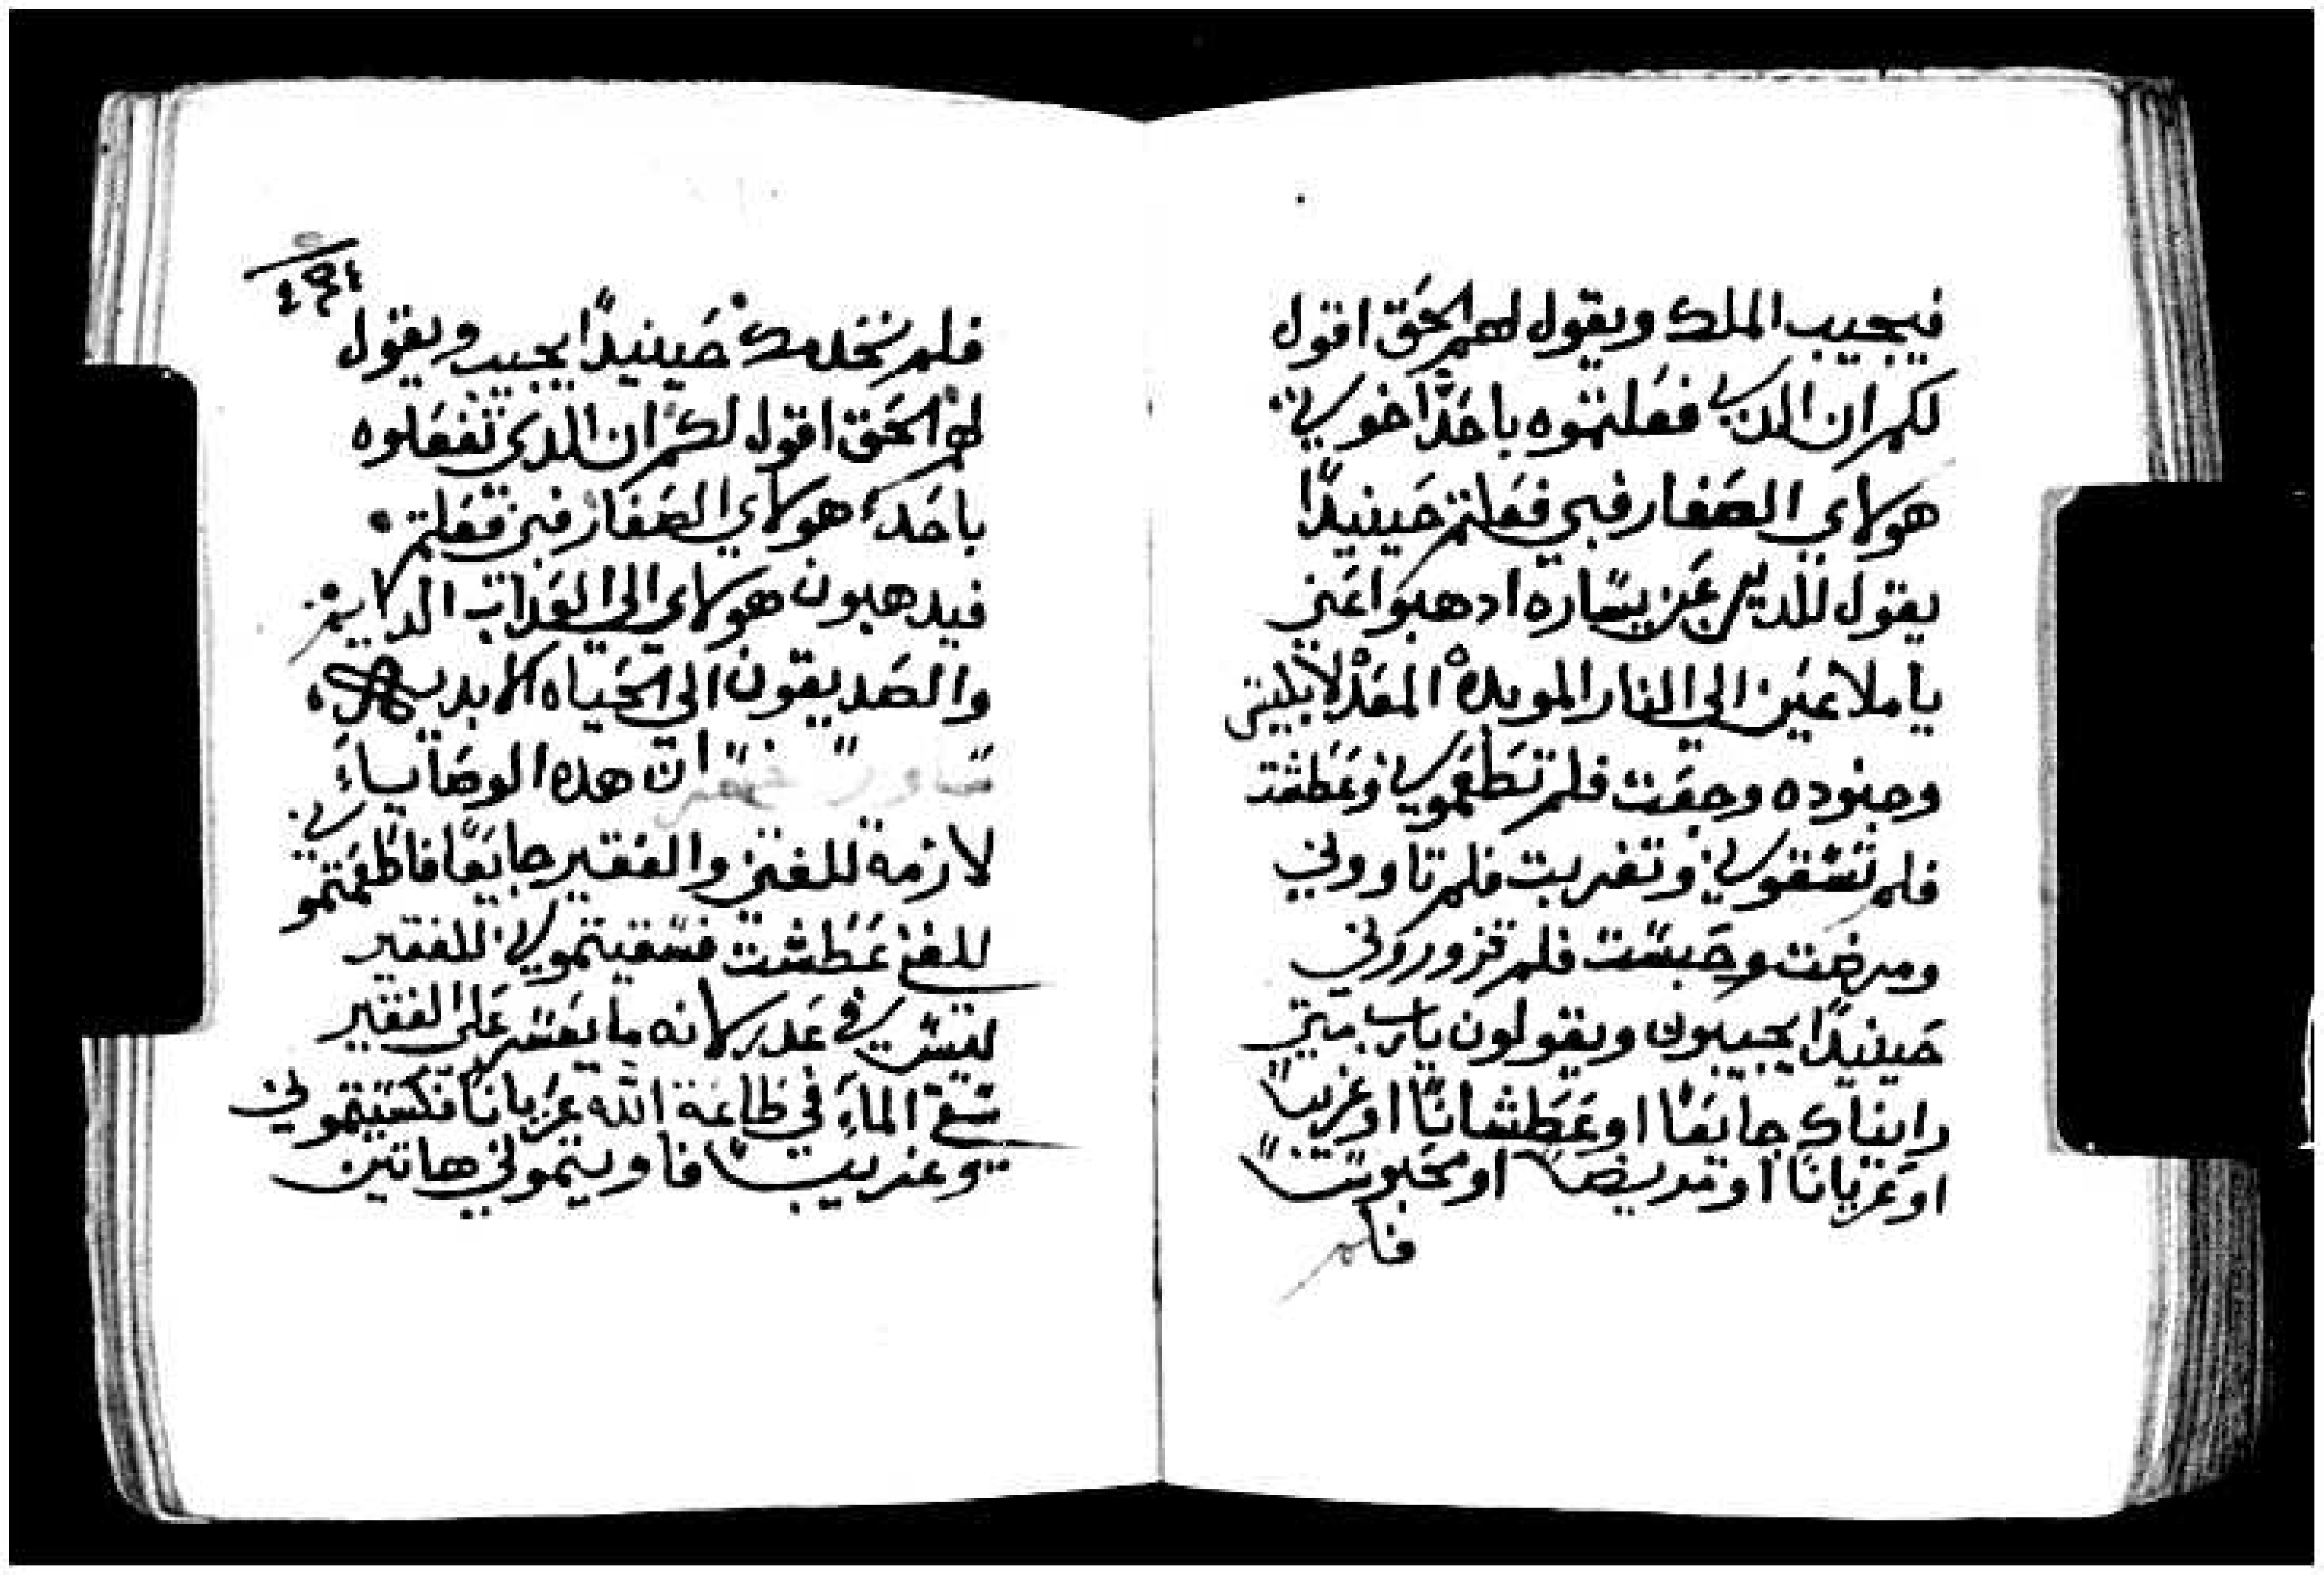 فيجيب الملك ويقول لهم الحَق اقول
لكم ان الدي فعَلتموه باحَد اخوتي
هولاي الصَغار فبي فعَلتم حَينيدًا
يقول للدين عَن يسَاره ادهبوا عَني
يا ملاعَين الي النار الموبده المعَده لابليس
وجنوده وجعَت فلم تطعَموني وعَطشت
فلم تسَقوني وتغربت فلم تاووني
ومرضت وحَبسَت فلم تزوروني
حَينيدًا يجيبون ويقولون يارب متي
رايناك جايعَا او عَطشانًا او غريبًا
او عَريانًا او مريضا او محَبوسًا
فلم
فلم نخدمك حَينيدًا يجيب ويقول
لهم الحَق اقول لكم ان الدي تفعَلوه
باحَد هولاي الصَغار فبي فعَلتم
فيدهبون هولاي الي العَداب الدايم
والصَديقون الي الحَياه الابديه
ان هده الوصَايا
لازمة للغني والفقير جايعَا فاطعَمتموني
للغني عَطشت فسَقيتموني للفقير
ليسَ في عَدر لانه ما يعَسَر عَلي الفقير
سَقي الماءَ في طاعَة الله عَريانًا فكسَيتموني
وغريبًا فاويتموني هاتين